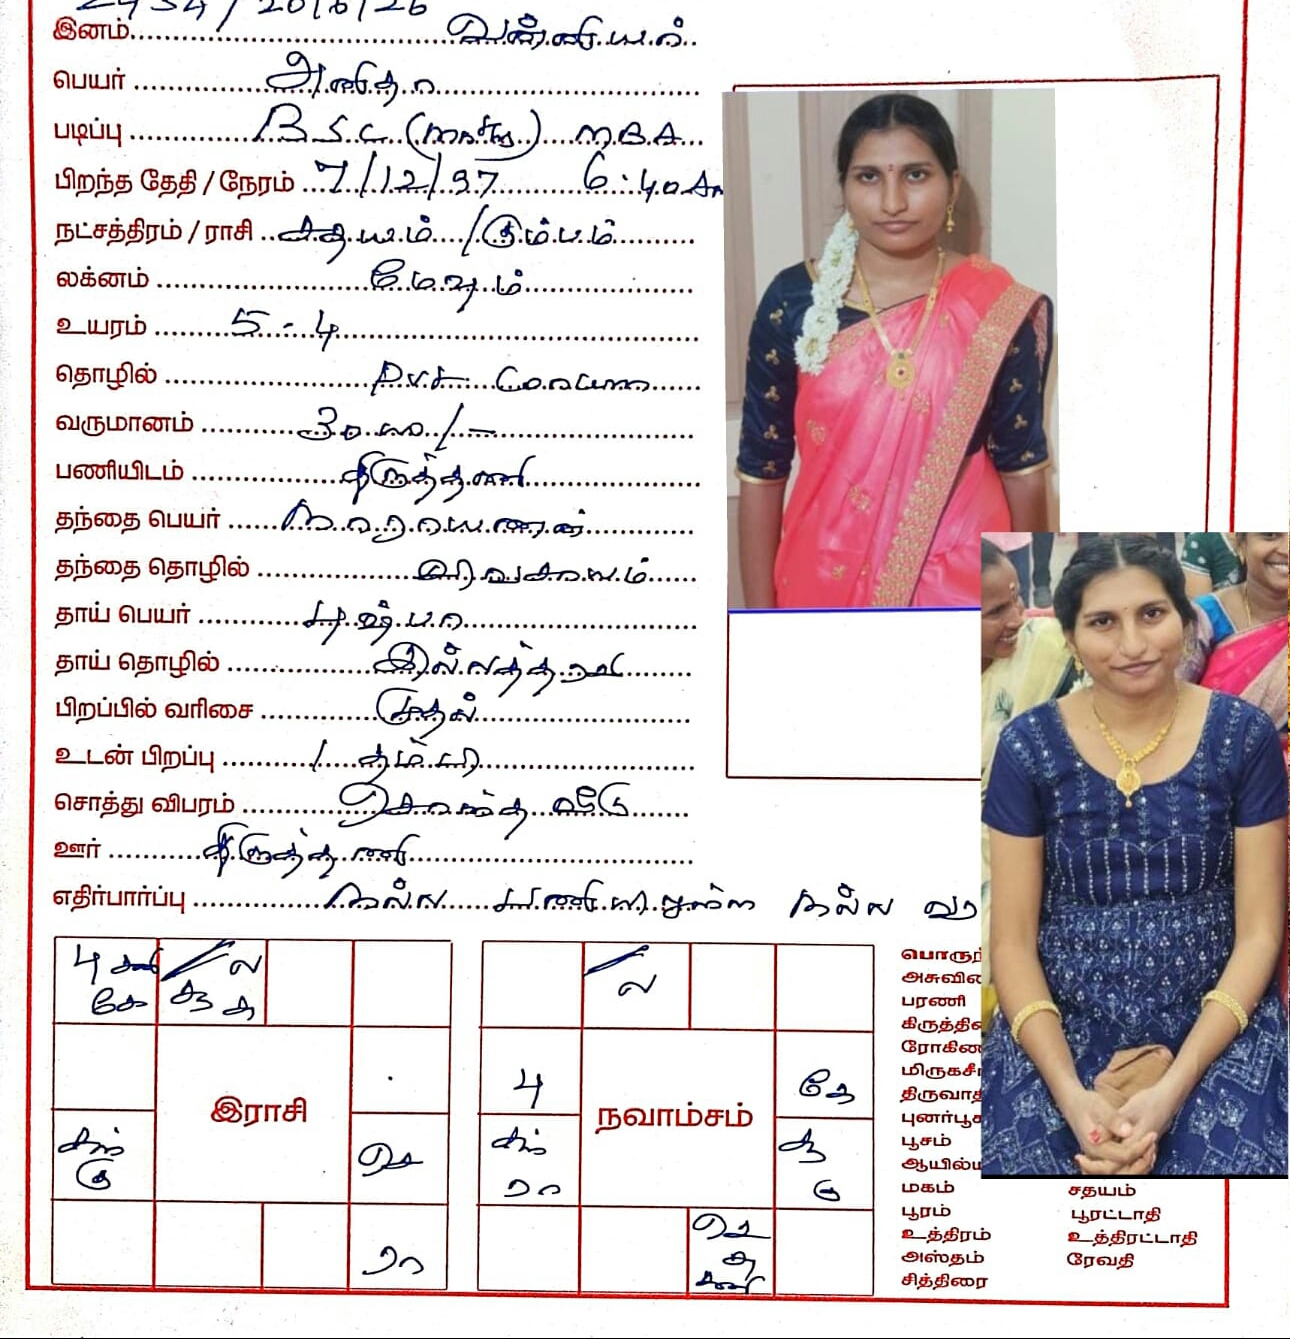 2434/20/6/26
இனம் வன்னியர்
பெயர் அனிதா
படிப்பு B.S.C (Maths) M.B.A.
பிறந்த தேதி / நேரம் 7/12/97 6:40 Am
நட்சத்திரம் / ராசி சதயம் / கும்பம்
லக்னம் மேஷம்
உயரம் 5-4
தொழில் Pvt
வருமானம் /-
பணியிடம் திருத்தணி
தந்தை பெயர் நாராயணன்
தந்தை தொழில் விவசாயம்
தாய் பெயர் புஷ்பா
தாய் தொழில் இல்லத்தரசி
பிறப்பில் வரிசை முதல்
உடன் பிறப்பு 1 தம்பி
சொத்து விபரம் சொந்த வீடு
ஊர் திருத்தணி
எதிர்பார்ப்பு நல்ல பணியிலுள்ள நல்ல வர
4 சனி கே
ல சூ சு
இராசி
சந் கு
செ
ரா
ல
4
நவாம்சம்
கே
சந் ரா
சூ கு
செ சு சனி
பொருந்
அசுவினி
பரணி
கிருத்தி
ரோகிணி
மிருகசீ
திருவாதி
புனர்பூச
பூசம்
ஆயில்ய
மகம் சதயம்
பூரம் பூரட்டாதி
உத்திரம் உத்திரட்டாதி
அஸ்தம் ரேவதி
சித்திரை